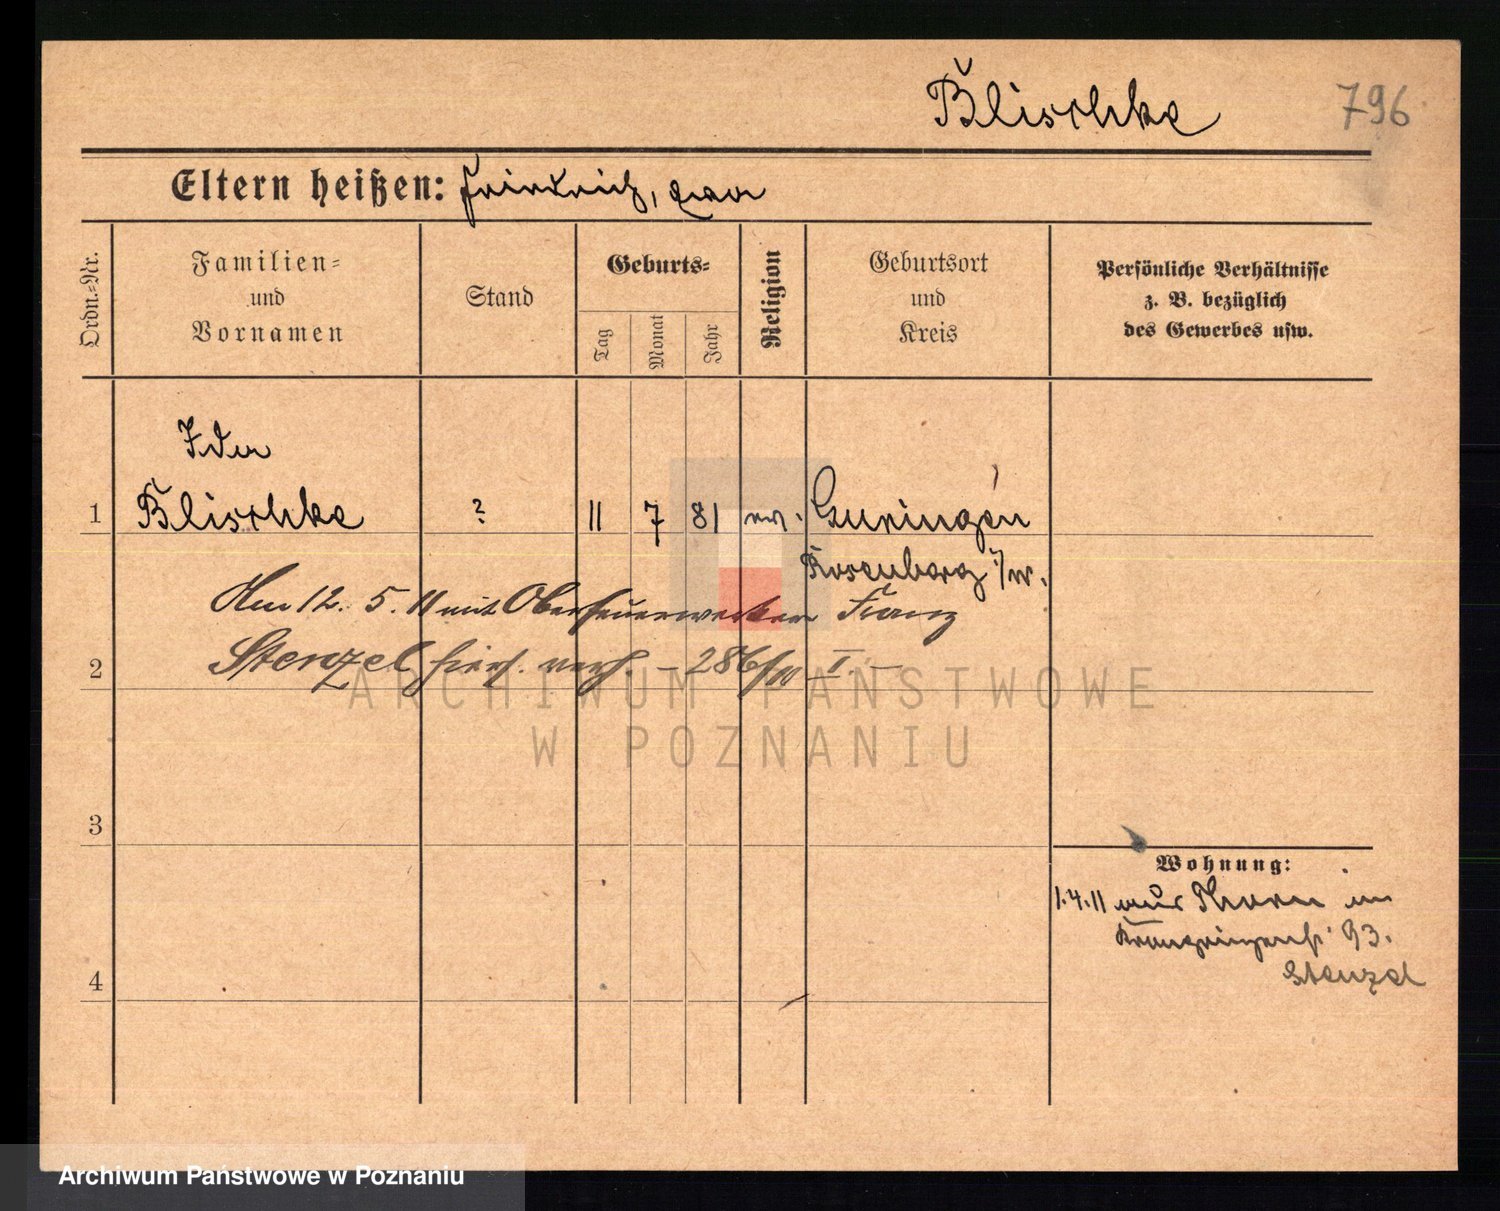 Blischke
796
Eltern heißen: Friedrich, Eva
Ordn.-Nr.
Familien-
und
Vornamen
Stand
Geburts-
Tag
Monat
Jahr
Religion
Geburtsort
und
Kreis
Persönliche Verhältnisse
z. B. bezüglich
des Gewerbes usw.
Ida
1 Blischke ? 11 7 81 ev. Guringen
Rosenberg i/W.
Am 12. 5. 11 mit Oberfeuerwerker Franz
2 Stenzel hiers. verh. - 286/10 I. -
ARCHIWUM PAŃSTWOWE
W POZNANIU
3
Wohnung:
1.4.11 aus Thorn in
93.
Stenzel
4
Archiwum Państwowe w Poznaniu